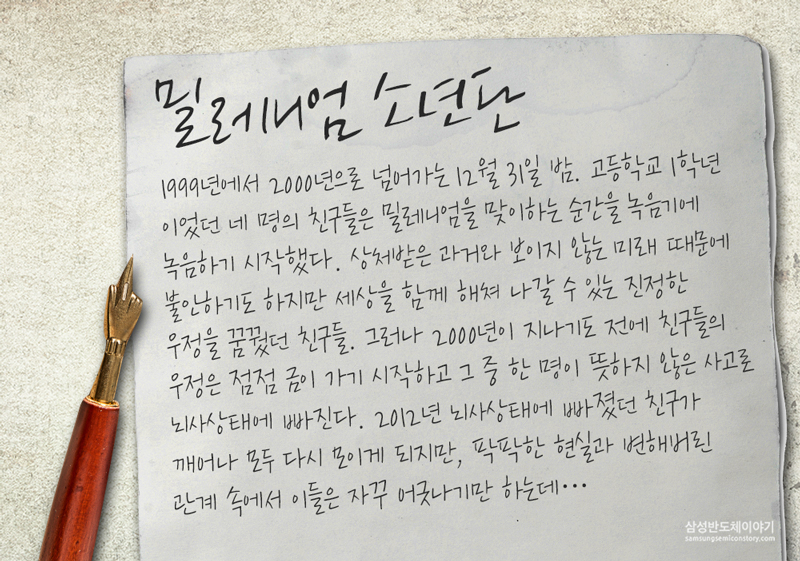 밀레니엄 소년단
1999년에서 2000년으로 넘어가는 12월 31일 밤. 고등학교 1학년
이었던 네 명의 친구들은 밀레니엄을 맞이하는 순간을 녹음기에
녹음하기 시작했다. 상처받은 과거와 보이지 않는 미래 때문에
불안하기도 하지만 세상을 함께 해쳐 나갈 수 있는 진정한
우정을 꿈꿨던 친구들. 그러나 2000년이 지나기도 전에 친구들의
우정은 점점 금이 가기 시작하고 그 중 한 명이 뜻하지 않은 사고로
뇌사상태에 빠진다. 2012년 뇌사상태에 빠졌던 친구가
깨어나 모두 다시 모이게 되지만, 팍팍한 현실과 변해버린
관계 속에서 이들은 자꾸 어긋나기만 하는데…
삼성반도체이야기
samsungsemiconstory.com